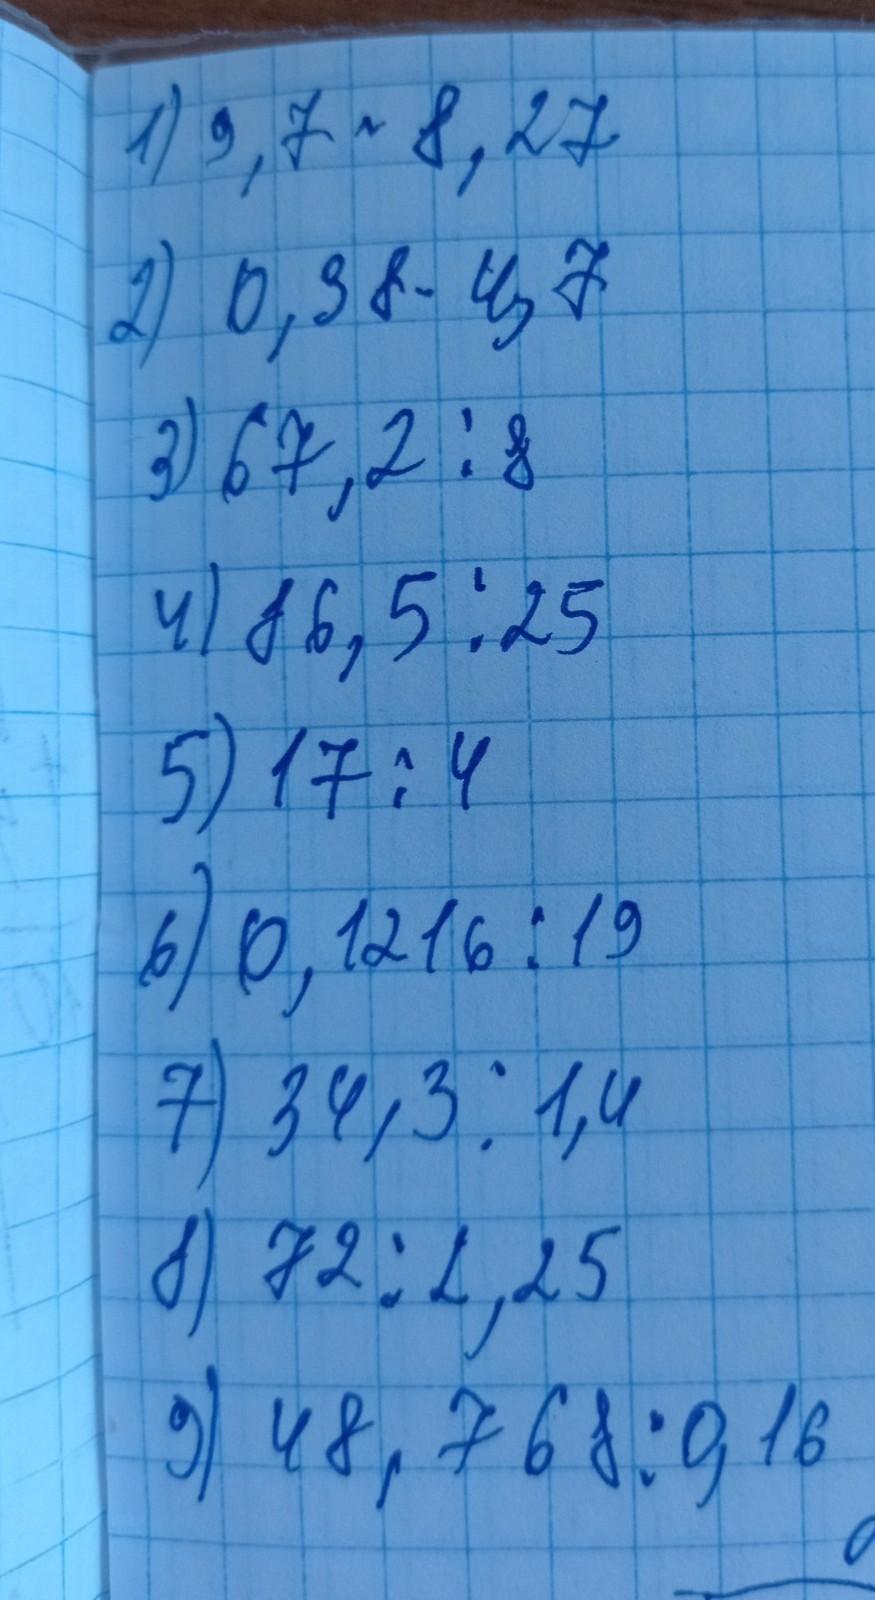 1) 9,7 · 8,27
2) 0,98 · 4,7
3) 67,2 : 8
4) 86,5 : 25
5) 17 : 4
6) 0,1216 : 19
7) 34,3 : 1,4
8) 72 : 2,25
9) 48,768 : 0,16